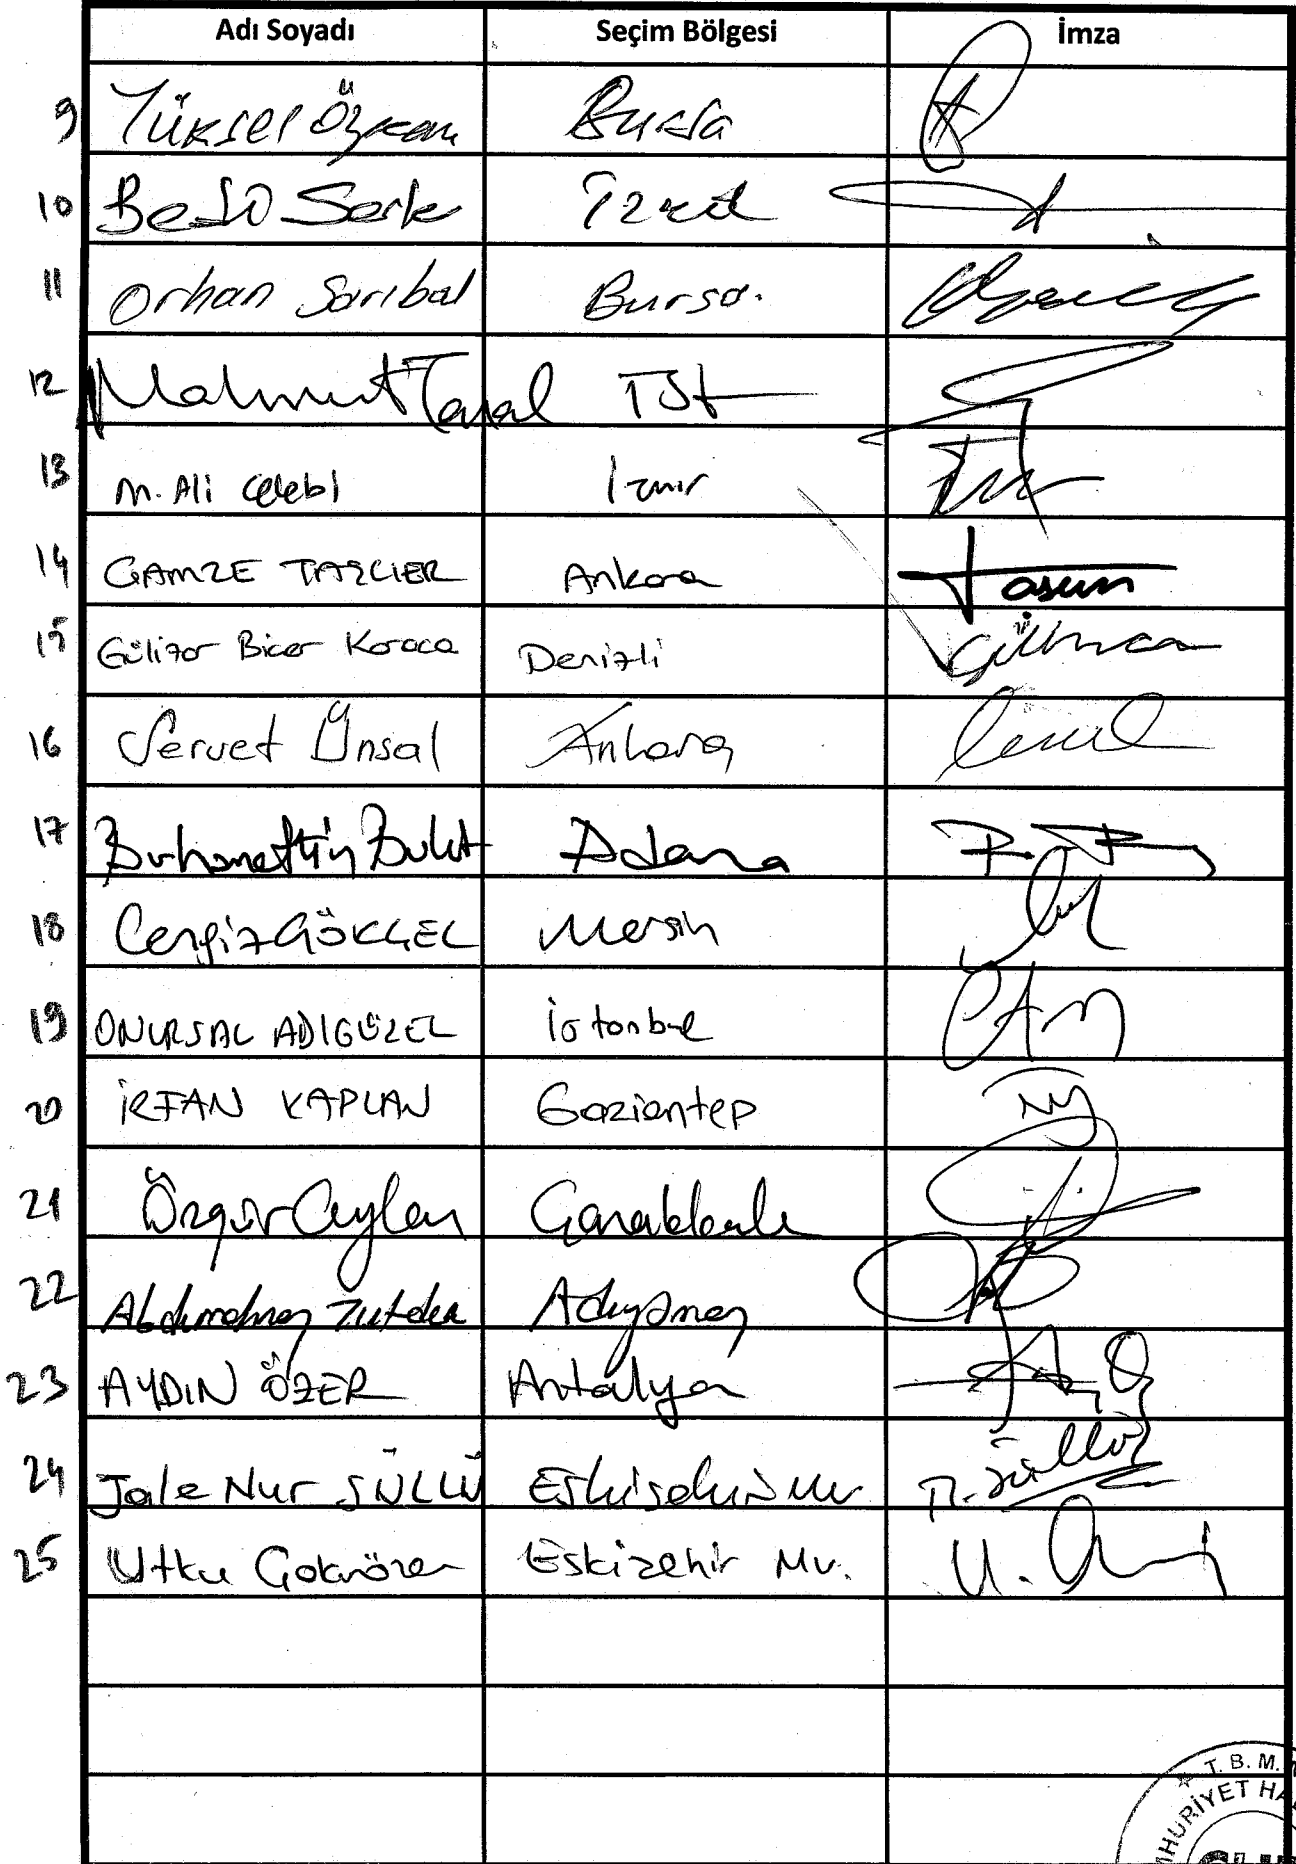 Adı Soyadı Seçim Bölgesi İmza
9 Yüksel Özkan Bursa
10 Bedri Serter İzmir
11 Orhan Sarıbal Bursa.
12 Mahmut Tanal İst
13 M. Ali Çelebi İzmir
14 GAMZE TAŞCIER Ankara
15 Gülizar Biçer Karaca Denizli
16 Servet Ünsal Ankara
17 Burhanettin Bulut Adana
18 Cengiz GÖKÇEL Mersin
19 ONURSAL ADIGÜZEL İstanbul
20 İRFAN KAPLAN Gaziantep
21 Özgür Ceylan Çanakkale
22 Abdurrahman Tutdere Adıyaman
23 AYDIN ÖZER Antalya
24 Jale Nur SÜLLÜ Eskişehir Mv.
25 Utku Çakırözer Eskişehir Mv.
T. B. M.